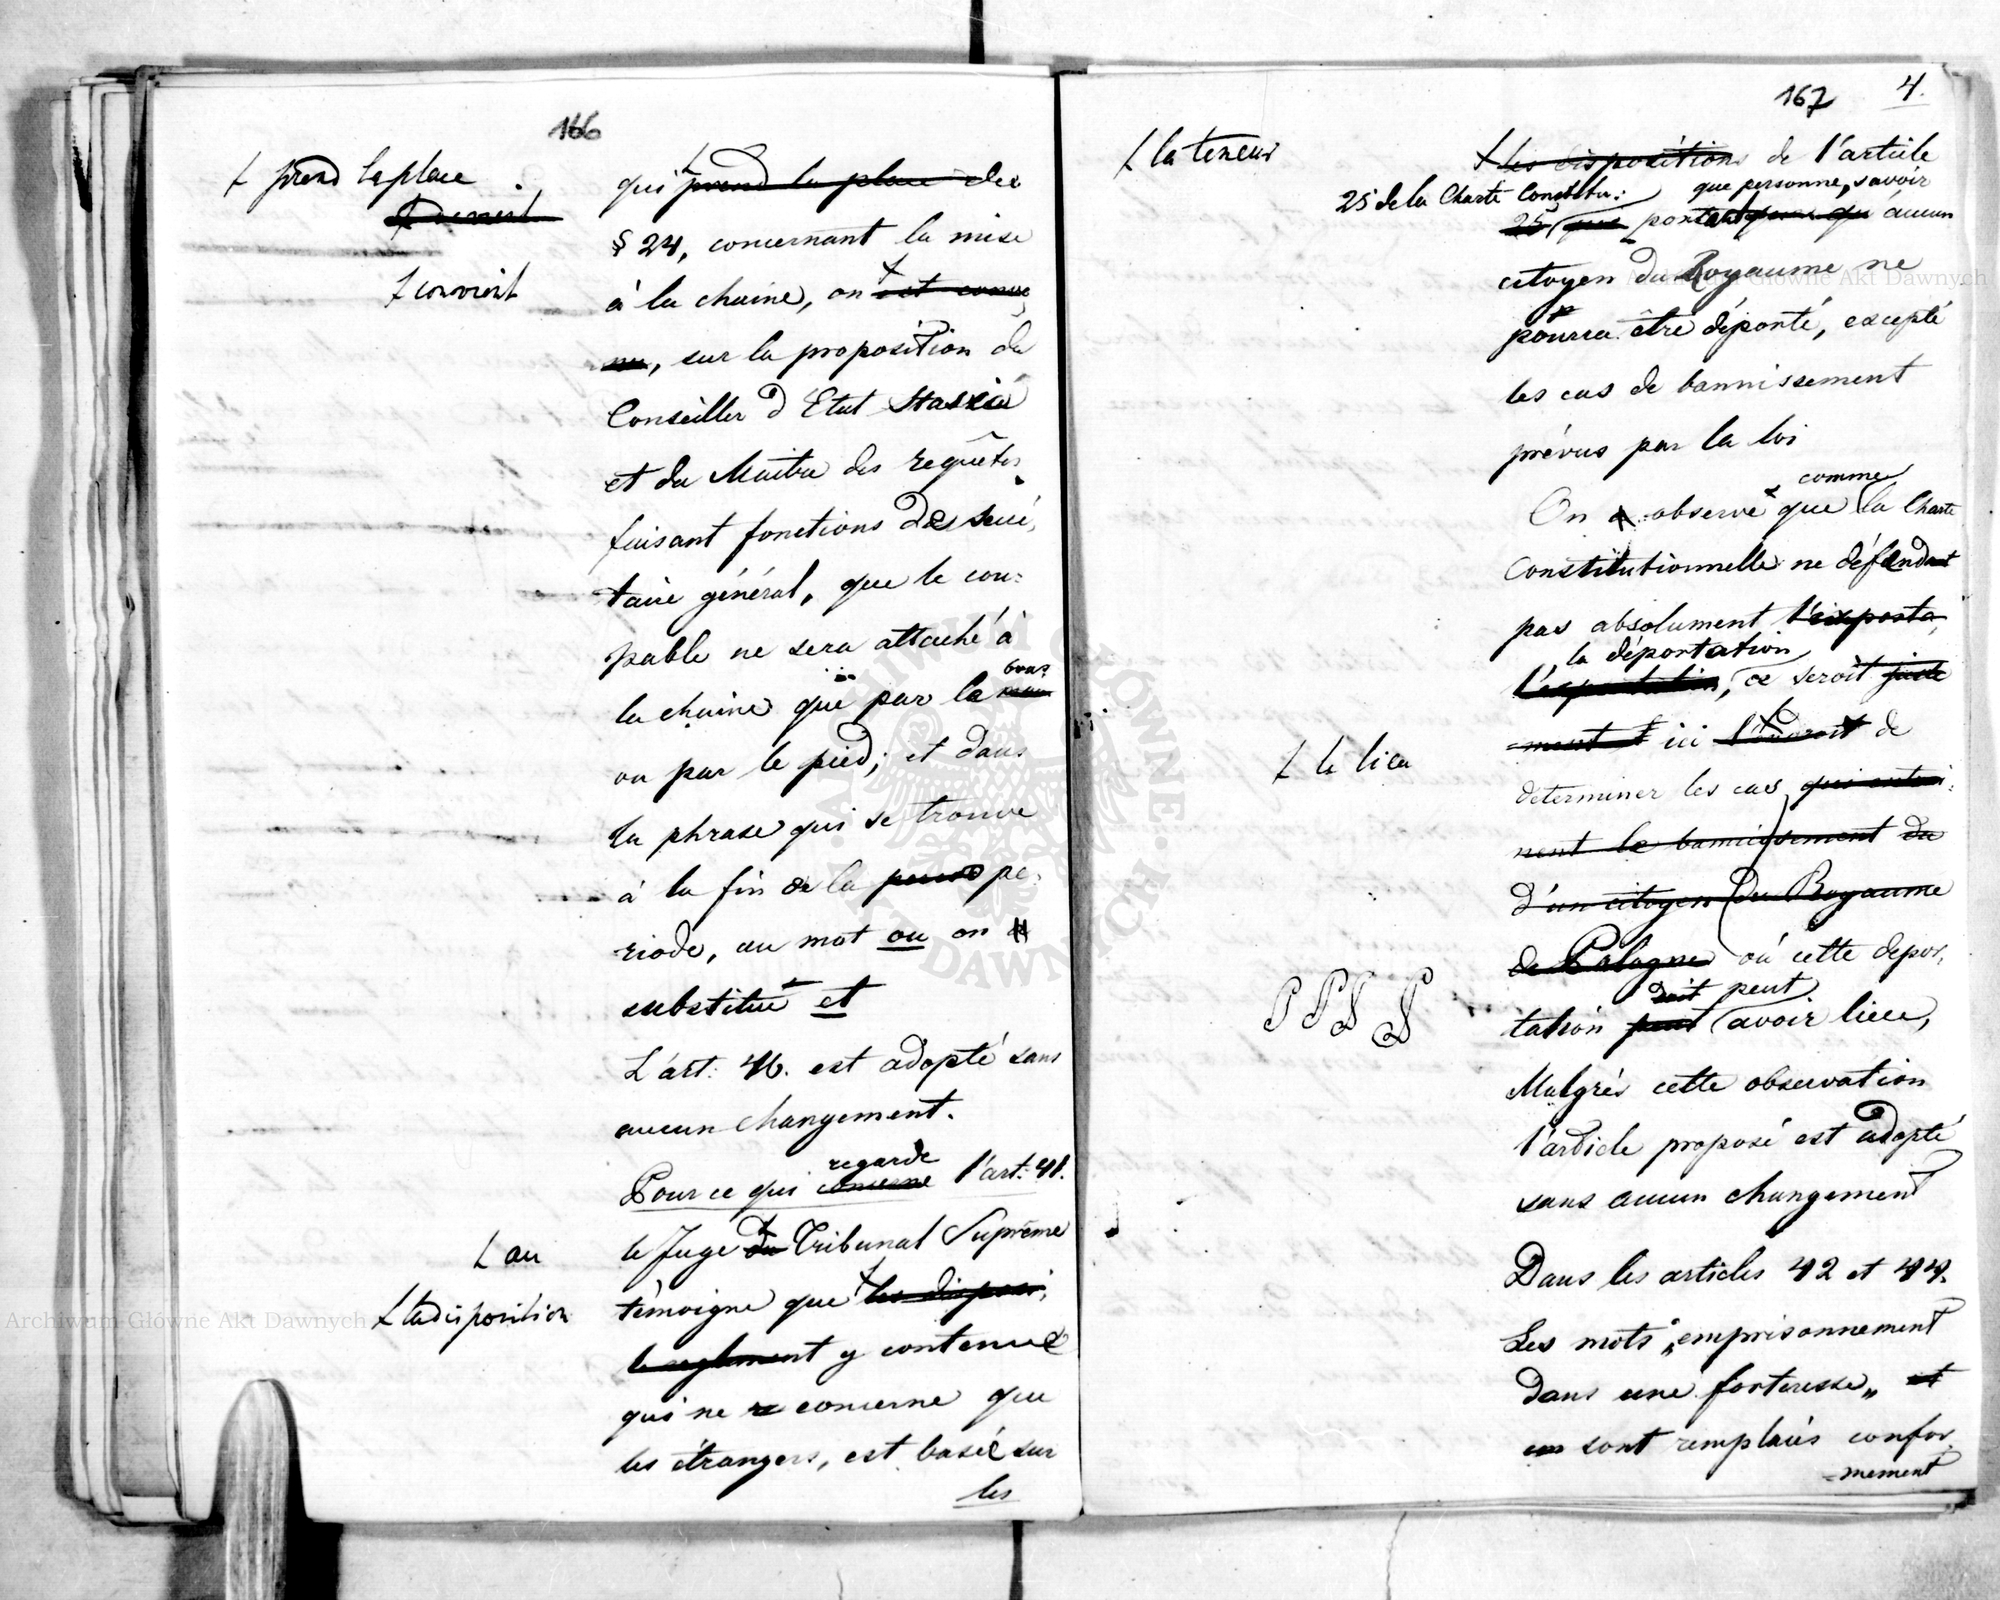 166
ꝉ prend la place
qui prend la place des
§ 24, concernant la mise
ꝉ convient
à la chaine, on est conve
nu, sur la proposition du
Conseiller d'Etat Staszic
et du Maitre des requêtes
faisant fonctions de secré,
taire général, que le cou:
pable ne sera attaché à
la chaine que par le bras
ou par le pied; et dans
la phrase qui se trouve
à la fin de la pe:
riode, au mot ou on
substitue et
L'art: 46. est adopté sans
aucun changement.
regarde
Pour ce qui concerne l'art: 41.
ꝉ au
le Juge du Tribunal Suprême
ꝉ la disposition
témoigne que les disposi,
le reglement y contenue
qui ne concerne que
les étrangers, est basée sur
les
167 4.
ꝉ la teneur
ꝉ les dispositions de l'article
25 de la Charte Constitu: que personne, savoir
25 que portant que aucun
citoyen du Royaume ne
pourra être déporté, excepté
les cas de bannissement
prévus par la loi
comme
On a observé que la Charte
Constitutionnelle ne défendant
pas absolument l'exporta,
la déportation
l'exportation, ce seroit juste
ment ici l'endroit de
ꝉ le lieu
determiner les cas qui entrai:
nent le bannissement du
d'un citoyen du Royaume
de Pologne où cette depor,
doit peut
tation peut avoir lieu,
Malgrés cette observation
l'article proposé est adopté
sans aucun changement
Dans les articles 42 et 44.
Les mots „emprisonnement
dans une forteresse„ et
sont remplacés confor
=mement
Archiwum Główne Akt Dawnych
Archiwum Główne Akt Dawnych
ARCHIWUM GŁÓWNE AKT DAWNYCH